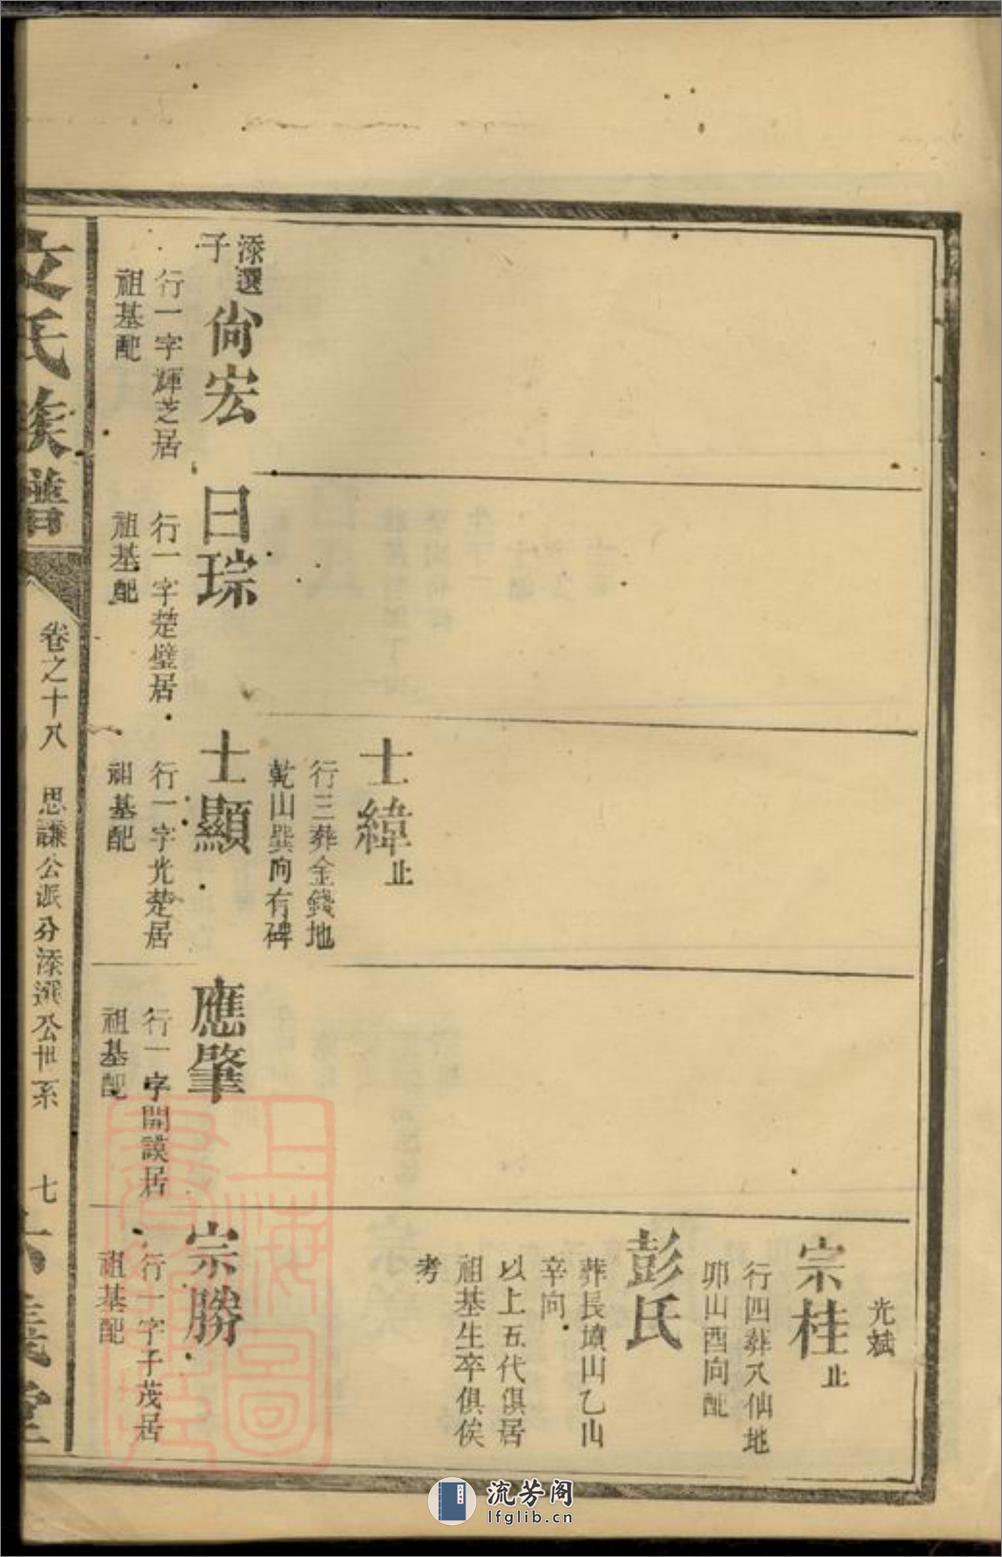 添選
子
尙宏
行一字輝芝居
祖基配
日琮
行一字楚璧居
祖基配
士緯止
行三葬金錢地
乾山巽向有碑
士顯
行一字光楚居
祖基配
應肇
行一字開謨居
祖基配
光斌
宗桂止
行四葬八仙地
卯山酉向配
彭氏
葬長墳山乙山
辛向
以上五代俱居
祖基生卒俱俟
考
宗勝
行一字子茂居
祖基配
文氏族譜
卷之十八
思謙公派分添選公世系
七
上海圖
流芳阁
lfglib.cn